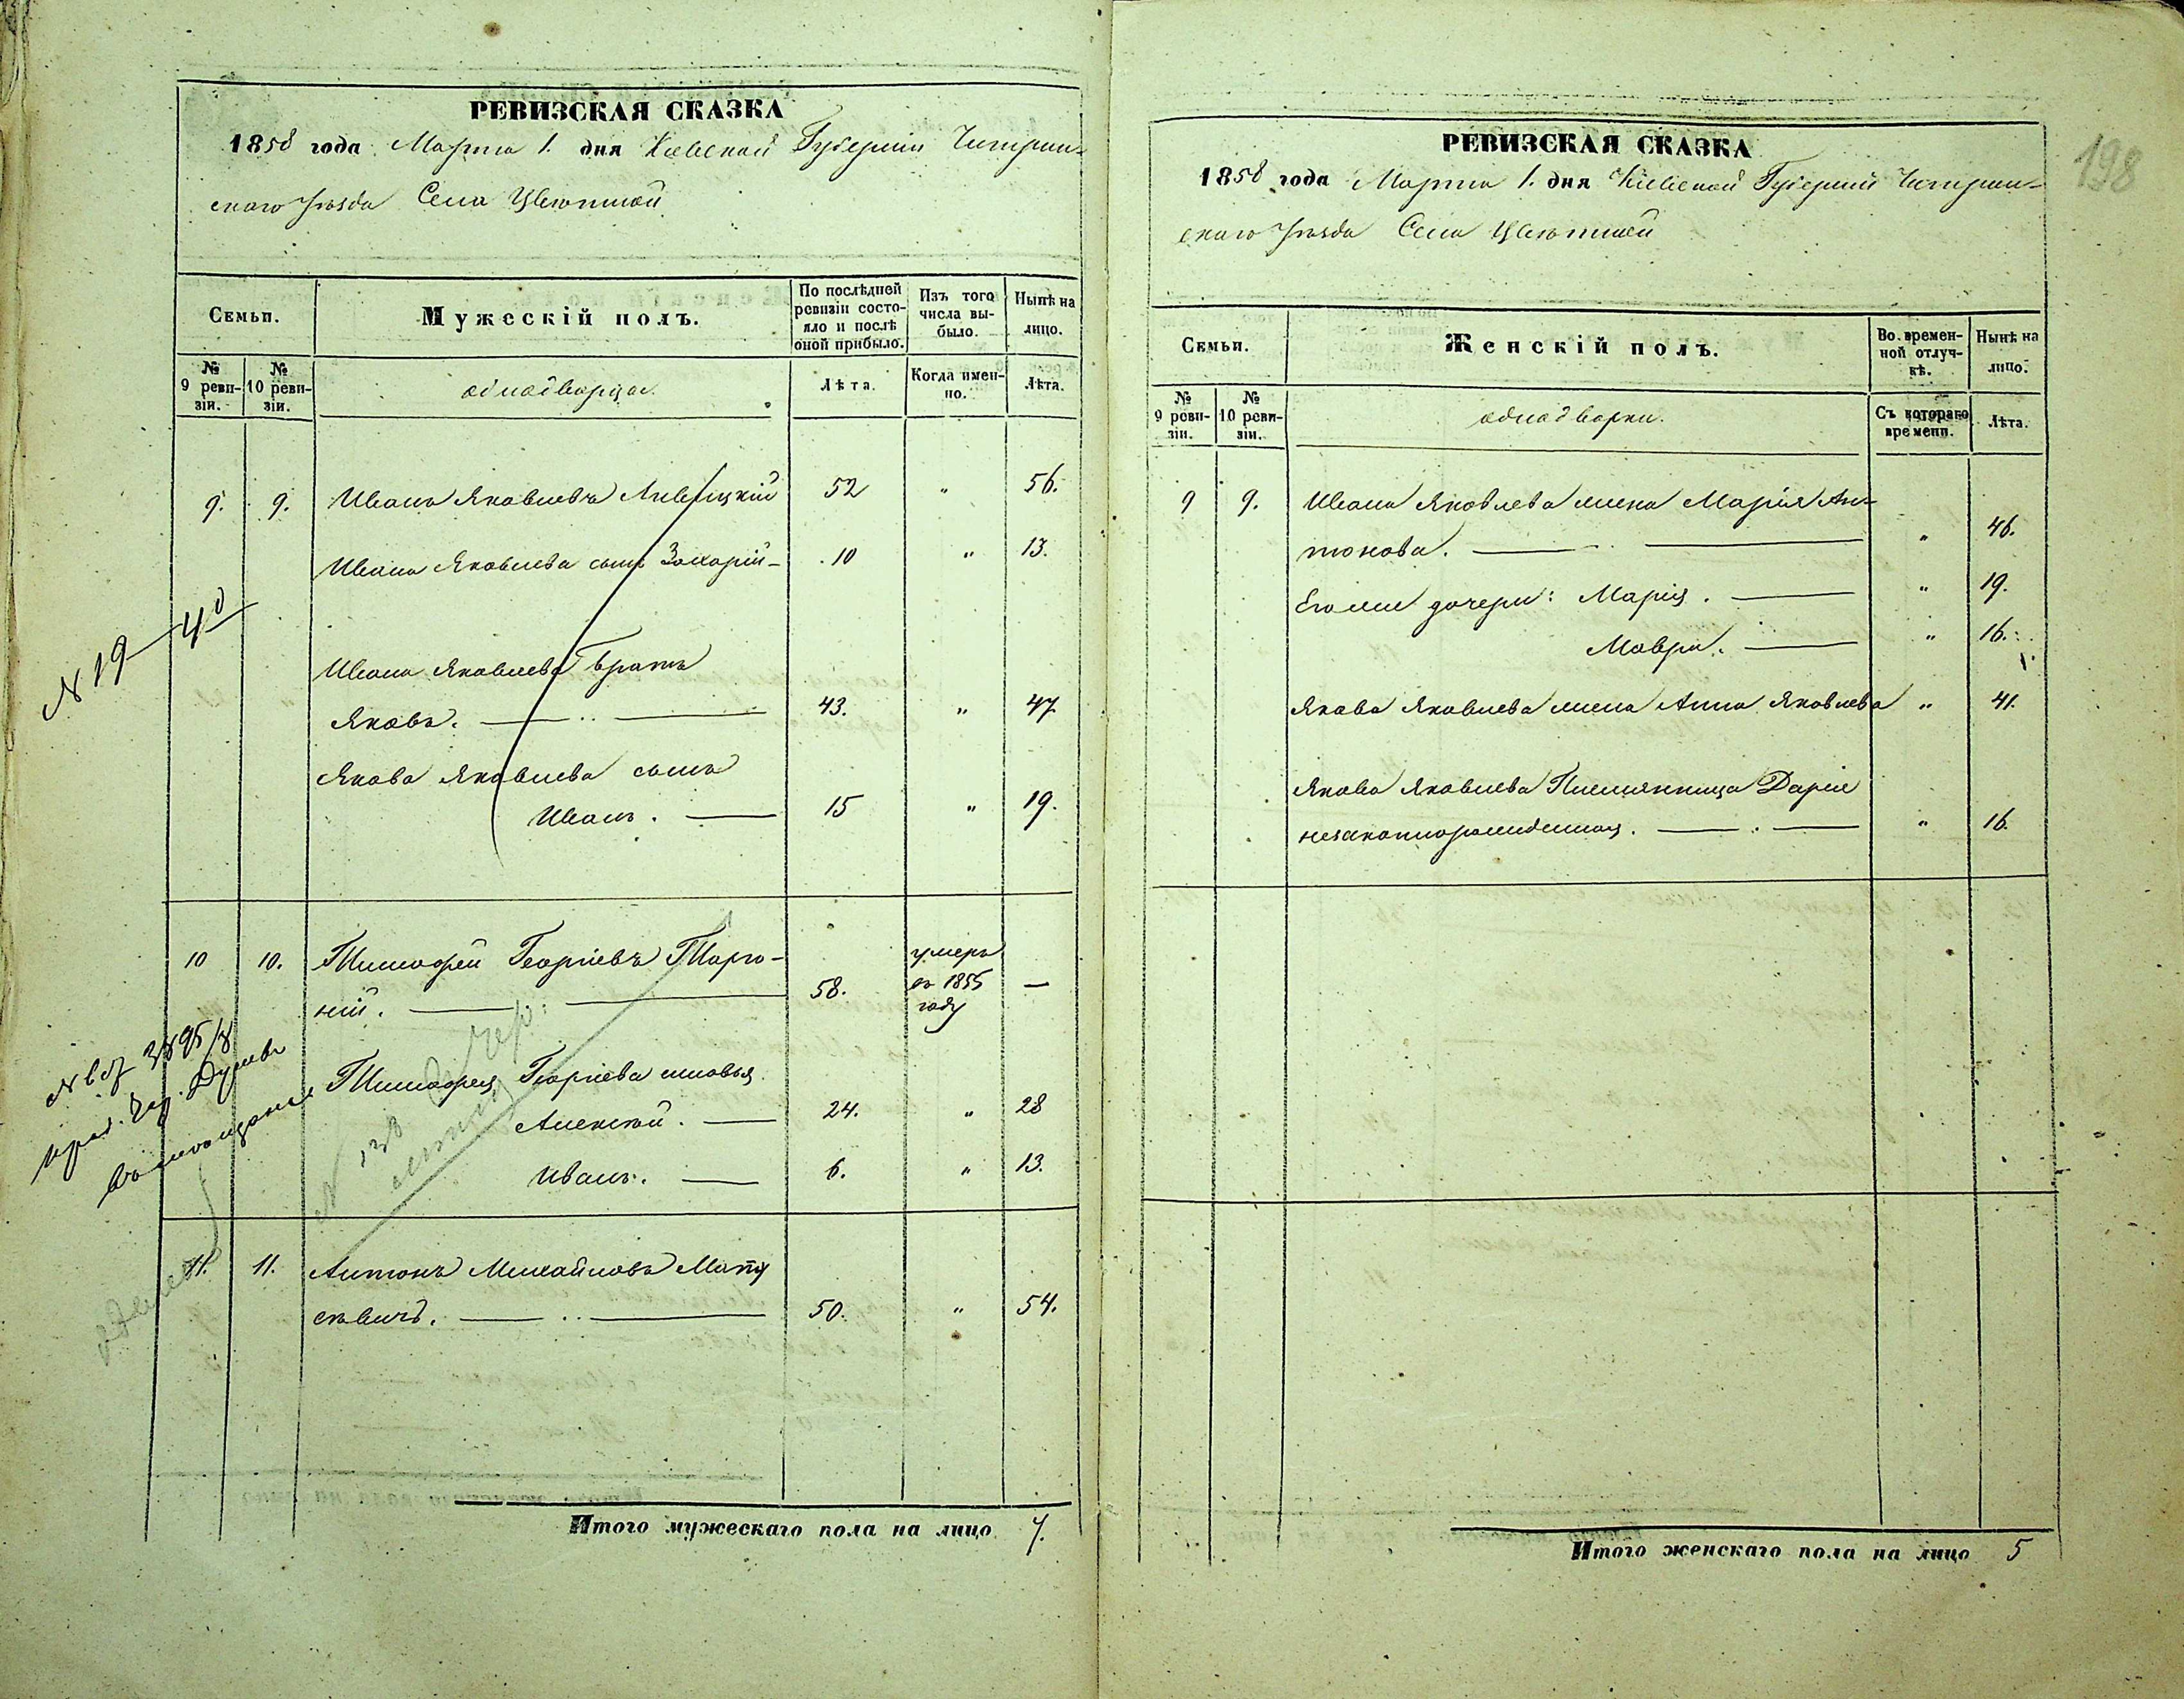 РЕВИЗСКАЯ СКАЗКА
1858 года Марта 1. дня Кіевской Губерніи Чигирин-
скаго Уѣзда Села Цвѣтной
Семьи.
Мужескій полъ.
По послѣдней ревизіи состо-
яло и послѣ
оной прибыло.
Изъ того
числа вы-
было.
Нынѣ на
лицо.
№
9 реви-
зіи.
№
10 реви-
зіи.
однодворцы.
Лѣта.
Когда имен-
но.
Лѣта.
9. 9. Иванъ Яковлевъ Ливицкій 52 " 56.
Ивана Яковлева сынъ Захарій 10 " 13.
N 19
Ивана Яковлева братъ
Яковъ. 43. " 47
Якова Яковлева сынъ
Иванъ. 15 " 19.
10 10. Тимофей Георгіевъ
ній. 58. умеръ
въ 1855
году —
Тимофея Георгіева сыновья
Алексѣй. 24. " 28
Иванъ. 6. " 13.
11. 11. Антонъ Михайловъ Мату
севичъ. 50. " 54.
Итого мужескаго пола на лицо 7.
198
РЕВИЗСКАЯ СКАЗКА
1858 года Марта 1. дня Кіевской Губерніи Чигирин-
скаго Уѣзда Села Цвѣтной
Семьи.
Женскій полъ.
Во времен-
ной отлуч-
кѣ.
Нынѣ на
лицо.
№
9 реви-
зіи.
№
10 реви-
зіи.
однодворки.
Съ котораго
времени.
Лѣта.
9 9. Ивана Яковлева жена Марія Ан-
тонова. " 46.
Его же дочери: Марія. " 19.
Мавра. " 16.
Якова Яковлева жена Анна Яковлева " 41.
Якова Яковлева Племянница Дарія
незаконнорожденная. " 16.
Итого женскаго пола на лицо 5